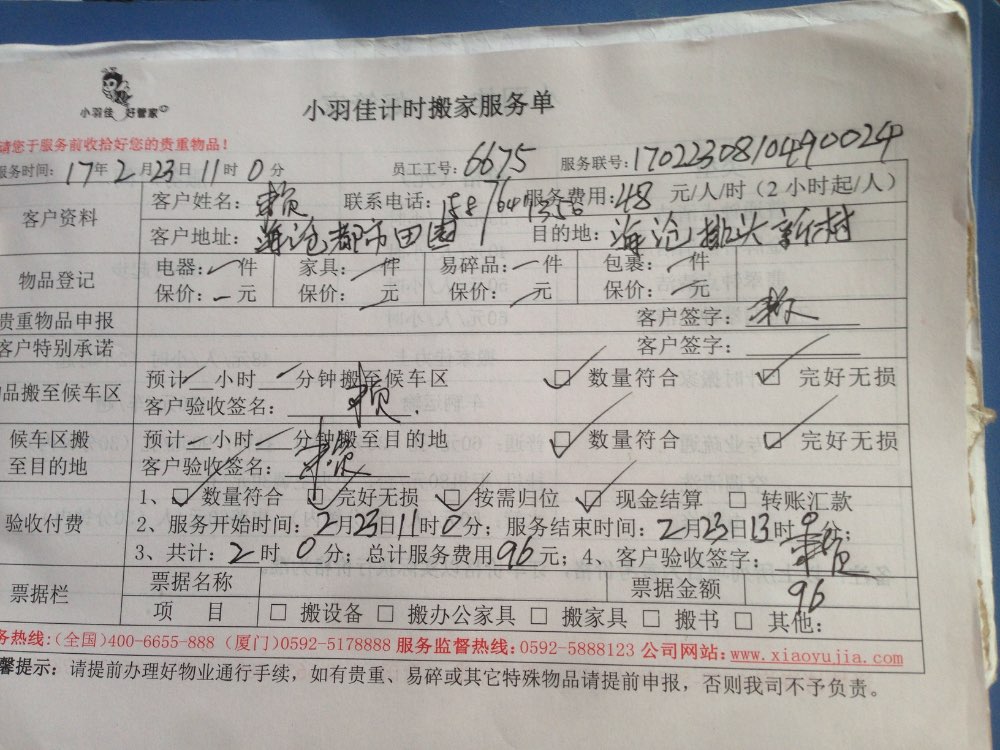 小羽佳 好管家
小羽佳计时搬家服务单
请您于服务前收拾好您的贵重物品！
服务时间：17年2月23日11时0分 员工工号：6675 服务联号：1702230810490024
客户资料
客户姓名：赖 联系电话： 服务费用：48 元/人/时（2小时起/人）
客户地址：海沧都市田园 目的地：海沧排头新村
物品登记
电器：一件 家具：一件 易碎品：一件 包裹：一件
保价：一元 保价：一元 保价：一元 保价：一元
贵重物品申报 客户签字：赖
客户特别承诺 客户签字：
品搬至候车区
预计一小时一分钟搬至候车区 ☑ 数量符合 ☑ 完好无损
客户验收签名：赖
候车区搬至目的地
预计一小时一分钟搬至目的地 ☑ 数量符合 ☑ 完好无损
客户验收签名：赖
验收付费
1、☑ 数量符合 ☑ 完好无损 ☑ 按需归位 ☑ 现金结算 □ 转账汇款
2、服务开始时间：2月23日11时0分；服务结束时间：2月23日13时0分；
3、共计：2时0分；总计服务费用96元；4、客户验收签字：赖
票据栏
票据名称 票据金额 96
项 目 □ 搬设备 □ 搬办公家具 □ 搬家具 □ 搬书 □ 其他：
务热线：(全国)400-6655-888 (厦门)0592-5178888 服务监督热线：0592-5888123 公司网站：www.xiaoyujia.com
馨提示：请提前办理好物业通行手续，如有贵重、易碎或其它特殊物品请提前申报，否则我司不予负责。